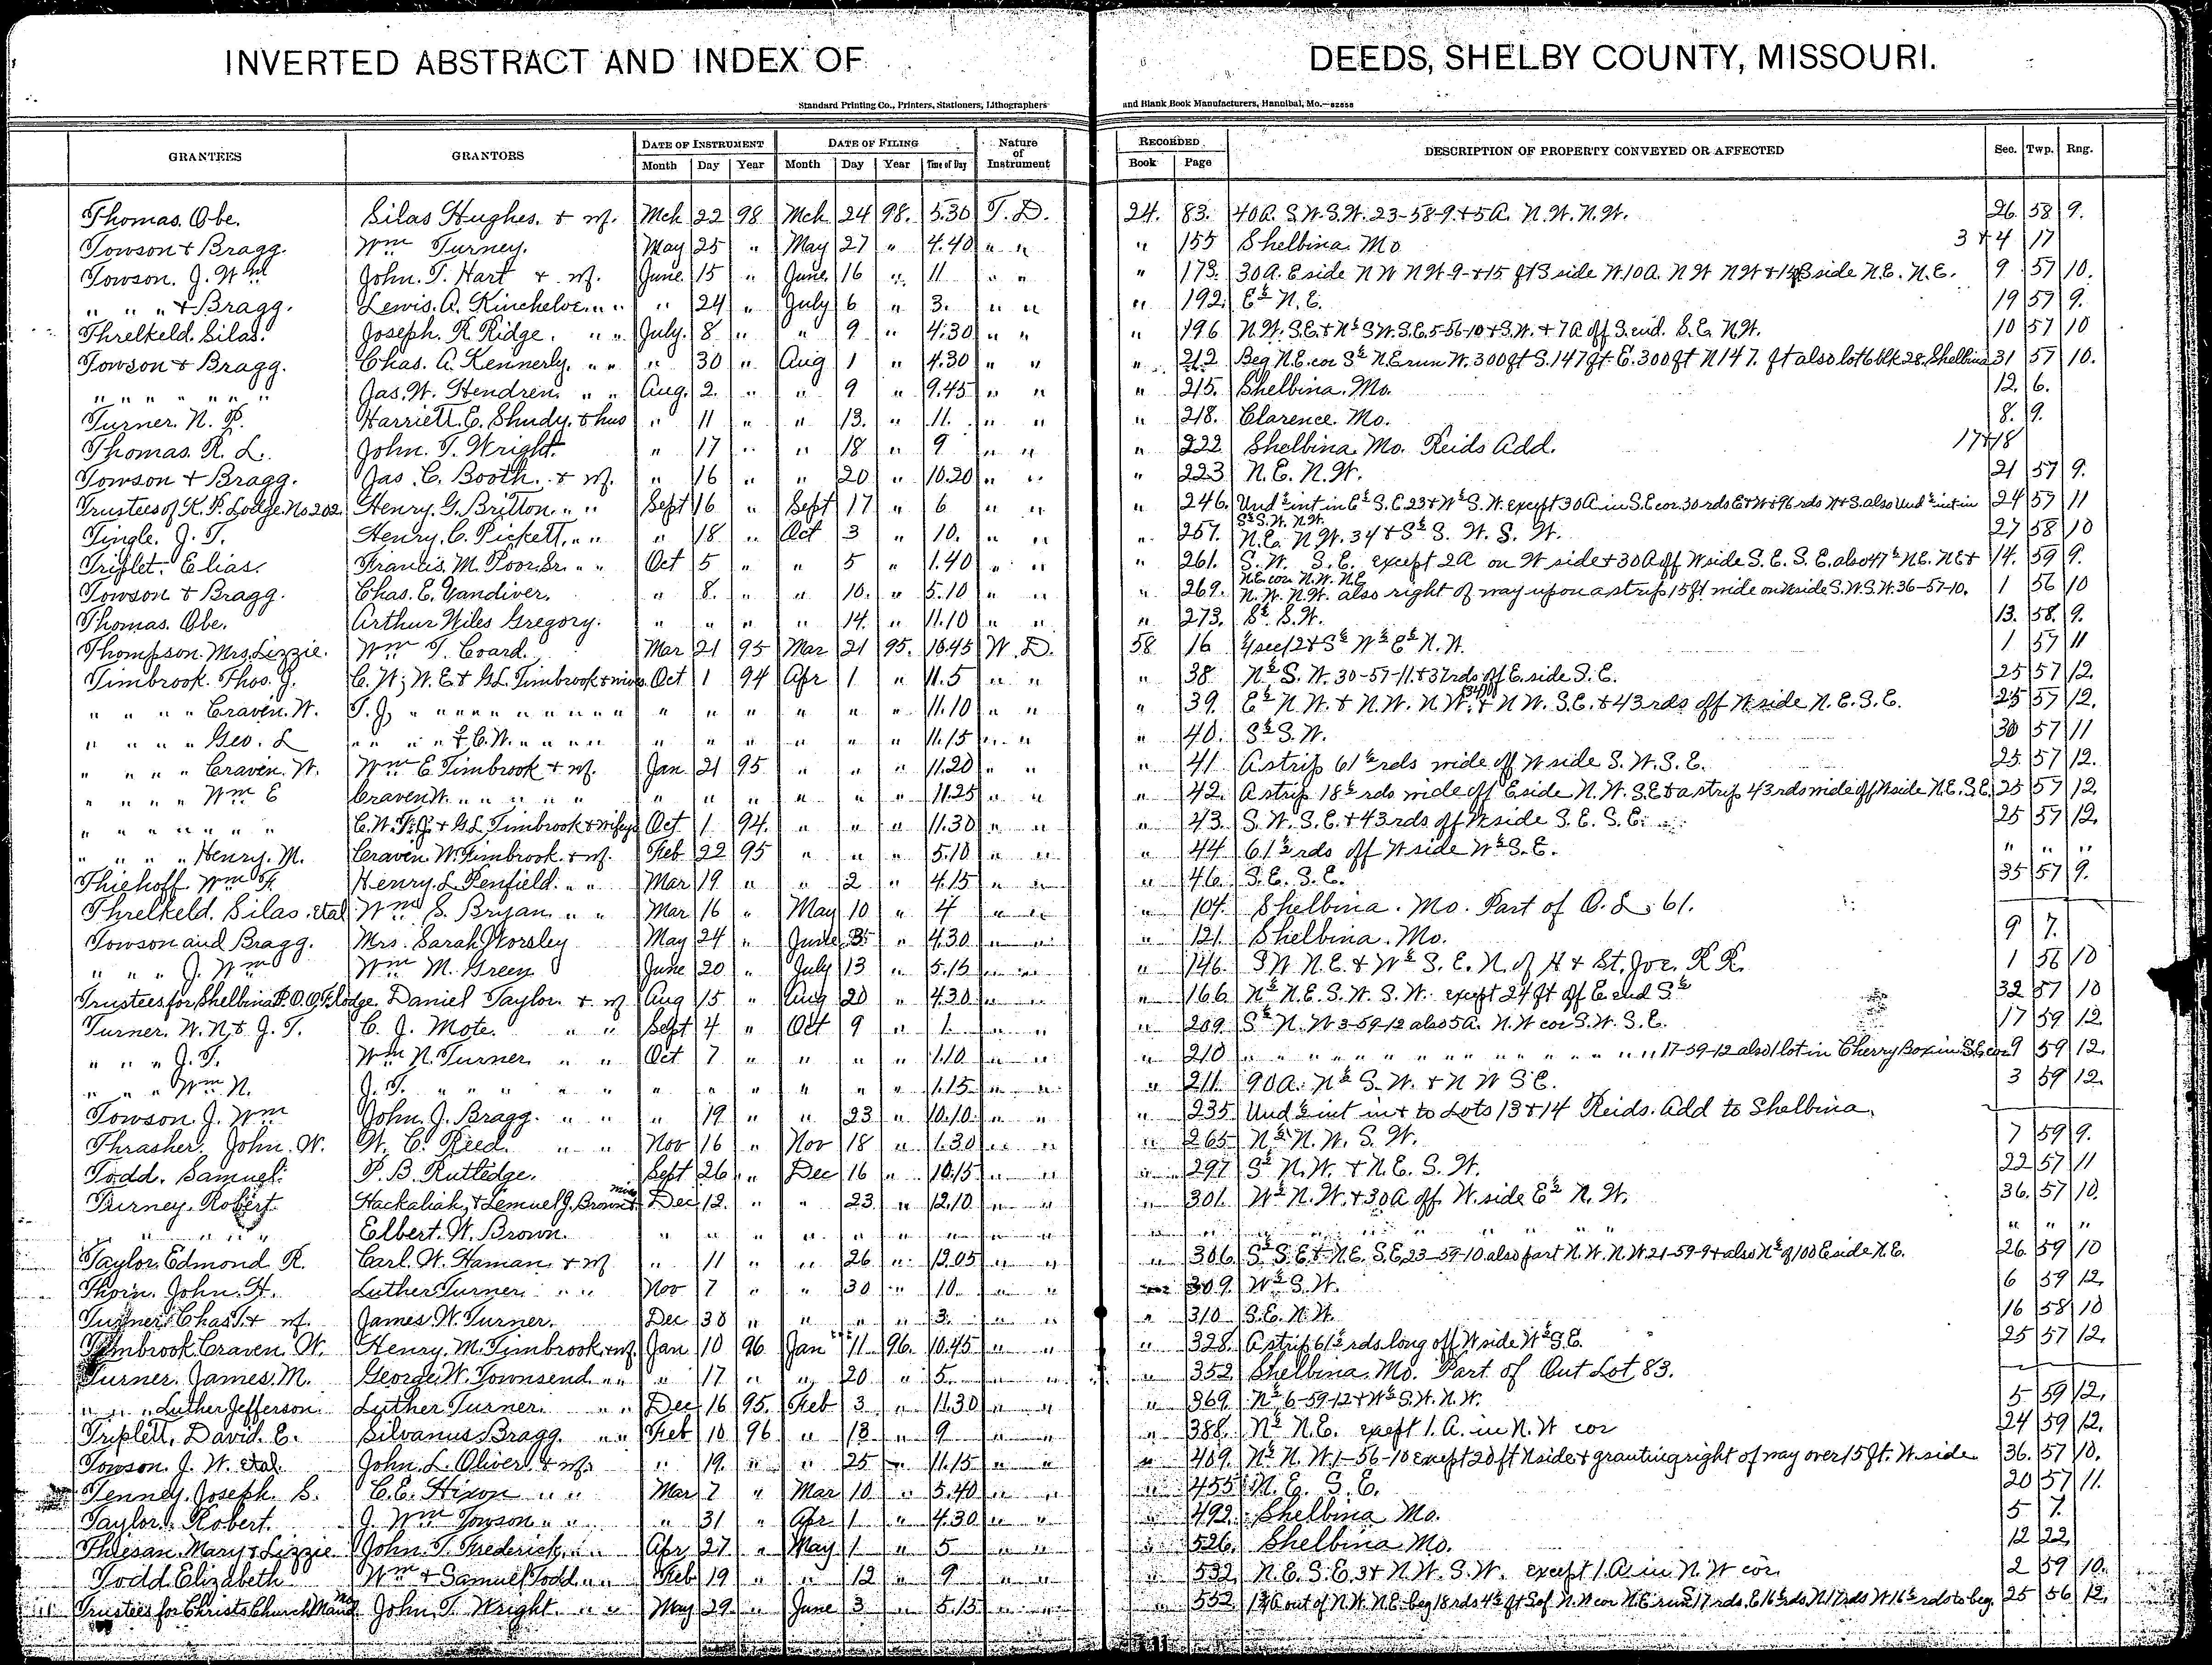 INVERTED ABSTRACT AND INDEX OF DEEDS, SHELBY COUNTY, MISSOURI.
Standard Printing Co., Printers, Stationers, Lithographers and Blank Book Manufacturers, Hannibal, Mo.—82858
GRANTEES GRANTORS DATE OF INSTRUMENT DATE OF FILING Nature of Instrument RECORDED DESCRIPTION OF PROPERTY CONVEYED OR AFFECTED Sec. Twp. Rng.
Month Day Year Month Day Year Time of Day Book Page
Thomas. Obe. Silas Hughes. + wf. Mch 22 98 Mch 24 98. 5.30 T.D. 24. 83. 40A. S.W.S.W. 23-58-9.+5A. N.W. N.W. 26 58 9.
Towson + Bragg. Wm Turney. May 25 " May 27 " 4.40 " " " 155 Shelbina. Mo 3+4 17
Towson. J. Wm John. T. Hart + wf. June 15 " June 16 " 11 " " " 173. 30A. E side N W N W-9-+15 ft S side W.10A. N W N W + S side N.E. N.E. 9 57 10.
" " " + Bragg. Lewis. A. Kincheloe " " " 24 " July 6 " 3. " " " 192. E½ N.E. 19 57 9.
Threlkeld. Silas. Joseph. R. Ridge. " " July. 8 " " 9 " 4.30 " " " 196 N.W. S.E. + N½ S.W. S.E. 5-56-10 + S.W. + 7A off S. end. S.E. N.W. 10 57 10
Towson + Bragg. Chas. A. Kennerly. " " " 30 " Aug 1 " 4.30 " " " 212 Beg N.E. cor S½ N.E run W. 300 ft S. 147 ft E. 300 ft N 147. ft also lot 6 blk 28. Shelbina 31 57 10.
" " " " " " Jas. W. Hendren " " Aug. 2. " " 9 " 9.45 " " " 215. Shelbina. Mo. 12. 6.
Turner. N. P. Harriett. E. Shudy. + hus " 11 " " 13. " 11. " " " 218. Clarence. Mo. 8. 9.
Thomas. R. L. John. T. Wright. " 17 " " 18 " 9 " " " 222 Shelbina. Mo. Reids Add. 17+18
Towson + Bragg. Jas. C. Booth. + wf. " 16 " " 20 " 10.20 " " " 223 N.E. N.W. 21 57 9.
Trustees of K. P. Lodge. No 202. Henry. G. Britton. " " Sept 16 " Sept 17 " 6 " " " 246. Und ½ int in E½ S.E. 23 + W½ S.W. except 30A in S.E cor. 30 rds E+W+96 rds N+S. also Und ½ int in 24 57 11
S½ S.W. N.W.
Tingle. J. T. Henry. C. Pickett. " " " 18 " Oct 3 " 10. " " " 257. N.E. N.W. 34 + S½ S.W. S.W. 27 58 10
Triplet. Elias. Francis. M. Poor. Sr. " " Oct 5 " " 5 " 1.40 " " " 261. S.W. S.E. except 2A on W side + 30A off W side S.E. S.E. also 47½ N.E. N.E + 14. 59 9.
N.E cor N.W. N.E
Towson + Bragg. Chas. E. Vandiver. " 8. " " 10. " 5.10 " " " 269. N.W. N.W. also right of way upon a strip 15 ft wide on side S.W.S.W. 36-57-10. 1 56 10
Thomas. Obe. Arthur Wiles Gregory. " " " " 14. " 11.10 " " " 273. S½ S.W. 13. 58. 9.
Thompson. Mrs. Lizzie. Wm T. Coard. Mar 21 95 Mar 21 95. 10.45 W.D. 58 16 S½ W½ E½ N.W. 1 57 11
Timbrook. Thos. J. C.W; W.E + G.L. Timbrook + wives Oct 1 94 Apr 1 " 11.5 " " " 38 N½ S.W. 30-57-11.+37 rds off E. side S.E. 25 57 12.
" " " " Craven. W. T.J. " " " " " " " " " " " " " " 11.10 " " " 39. E½ N.W. + N.W. N.W. + N W. S.E. + 43 rds off W side N.E. S.E. 25 57 12.
" " " " Geo. L " " " + C.W. " " " " " " " " " " 11.15 " " " 40. S½ S.W. 30 57 11
" " " " Craven. W. Wm E Timbrook + wf. Jan 21 95 " " " 11.20 " " " 41 A strip 61½ rds wide off W side S.W. S.E. 25 57 12.
" " " " Wm E Craven W. " " " " " " " " " " " 11.25 " " " 42. A strip 18½ rds wide off E side N.W. S.E + a strip 43 rds wide off W side N.E. S.E. 25 57 12.
" " " " " " C.W. T.J. + G.L. Timbrook + wifes Oct 1 94. " " " 11.30 " " " 43. S.W. S.E. + 43 rds off W side S.E. S.E. 25 57 12.
" " " " Henry. M. Craven. W. Timbrook. + wf. Feb 22 95 " " " 5.10 " " " 44 61½ rds off W side W½ S.E. " " "
Thiehoff Wm F. Henry. L. Penfield. " " Mar 19 " " 2 " 4.15 " " " 46. S.E. S.E. 35 57 9.
Threlkeld. Silas. etal Wm S. Bryan. " " Mar 16 " May 10 " 4 " " " 104. Shelbina. Mo. Part of O.L. 61.
Towson and Bragg. Mrs. Sarah Worsley May 24 " June " 4.30 " " " 121. Shelbina. Mo. 9 7.
" " " J. Wm Wm M. Green June 20 " July 13 " 5.15 " " " 146. S W N.E. + W½ S.E. N. of H + St. Joe. R R. 1 56 10
Trustees for Shelbina I.O.O.F. Lodge. Daniel Taylor + wf Aug 15 " Aug 20 " 4.30 " " " 166 N½ N.E. S.W. S.W. except 24 ft off E end S½ 32 57 10
Turner. W.N + J.T. C. J. Mote. " " Sept 4 " Oct 9 " 1 " " " 209. S½ N.W 3-59-12 also 5A. N.W cor S.W. S.E. 17 59 12
" " " J. T. Wm N. Turner " " Oct 7 " " " " 1.10 " " " 210 " " " " " " " " " " 17-59-12 also 1 lot in Cherry Box in S.E cor 9 59 12.
" " " Wm N. J. T. " " " " " " " " " " 1.15 " " " 211. 90A. N½ S.W. + N W S E. 3 59 12.
Towson. J. Wm John. J. Bragg. " " " 19 " " 23 " 10.10 " " " 235 Und ½ int in + to Lots 13+14 Reids. Add to Shelbina.
Thrasher. John. W. W. C. Reed. " " Nov 16 " Nov 18 " 1.30 " " " 265 N½ N.W. S.W. 7 59 9.
Todd. Samuel. P. B. Rutledge. Sept 26 " Dec 16 " 10.15 " " " 297 S½ N.W. + N.E. S.W. 22 57 11
Turney. Robert. Hackaliah + Lemuel J. Brown + wives Dec 12. " " 23 " 12.10 " " " 301. W½ N.W. + 30A off W. side E½ N.W. 36. 57 10.
" " " " Elbert. W. Brown. " " " " " " " " " " " " " " " " " "
Taylor. Edmond R. Carl. W. Haman + wf " 11 " " 26 " 12.05 " " " 306. S½ S.E + N.E. S.E. 23-59-10 also part N.W. N.W 21-59-9 + also N½ of 100 E side N.E. 26 59 10
Thorn. John. H. Luther Turner. " " Nov 7 " " 30 " 10. " " " 309. W½ S.W. 6 59 12.
Turner. Chas T. + wf. James W. Turner. Dec 30 " " " " 3. " " " 310 S.E. N.W. 16 58 10
Timbrook Craven. W. Henry. M. Timbrook. + wf. Jan 10 96 Jan 11 96. 10.45 " " " 328. A strip 61½ rds long off W side W½ S.E. 25 57 12.
Turner. James. M. George. W. Townsend. " " " 17 " " 20 " 5. " " " 352 Shelbina. Mo. Part of Out Lot 83.
" " " Luther Jefferson. Luther Turner. " " Dec 16 95. Feb 3 " 11.30 " " " 369. N½ 6-59-12 + W½ S.W. N.W. 5 59 12.
Triplett, David. E. Silvanus Bragg. " " Feb 10 96 " 13 " 9 " " " 388. N½ N.E. except 1. A. in N.W cor 24 59 12.
Towson. J. W. etal. John. L. Oliver. + wf. " 19. " " 25 " 11.15 " " " 409. N½ N.W. 1-56-10 except 20 ft N side + granting right of way over 15 ft. W side 36. 57 10.
Tenney. Joseph. S. C. E. Hixon " " Mar 7 " Mar 10 " 5.40 " " " 455 N.E. S.E. 20 57 11.
Taylor. Robert. J. Wm Towson " " " 31 " Apr 1 " 4.30 " " " 492. Shelbina Mo. 5 7.
Thiesan. Mary + Lizzie John. T. Frederick. " " Apr 27 " May 1 " 5 " " " 526. Shelbina Mo. 12 22
Todd Elizabeth Wm + Samuel Todd " " Feb 19 " " 12 " 9 " " " 532. N.E. S.E. 3 + N.W. S.W. except 1. A in N.W cor 2 59 10.
Trustees for Christs Church John. T. Wright. " " May 29 " June 3 " 5.15 " " " 552 out of N.W. N.E. beg 18 rds 4½ ft S of N.W cor N.E run S 17 rds. E 16½ rds. N 17 rds W 16½ rds to beg. 25 56 12.